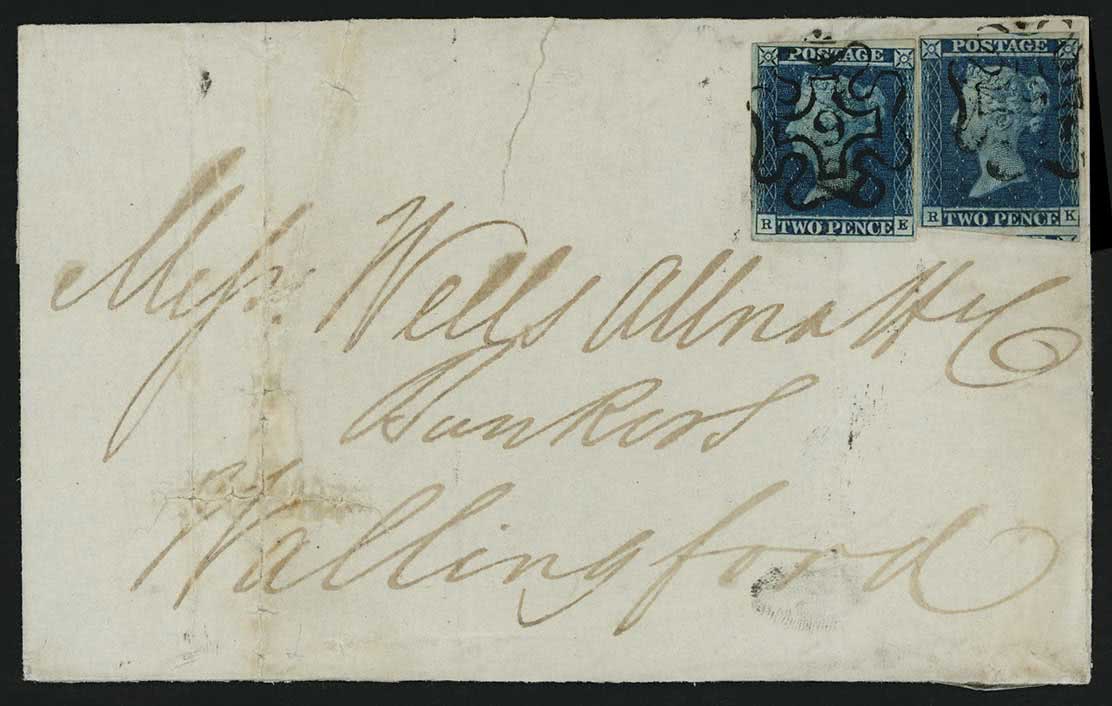 POSTAGE POSTAGE
9 9
R TWO PENCE E R TWO PENCE K
Messrs. Wells Allnatt & Co
Bankers
Wallingford